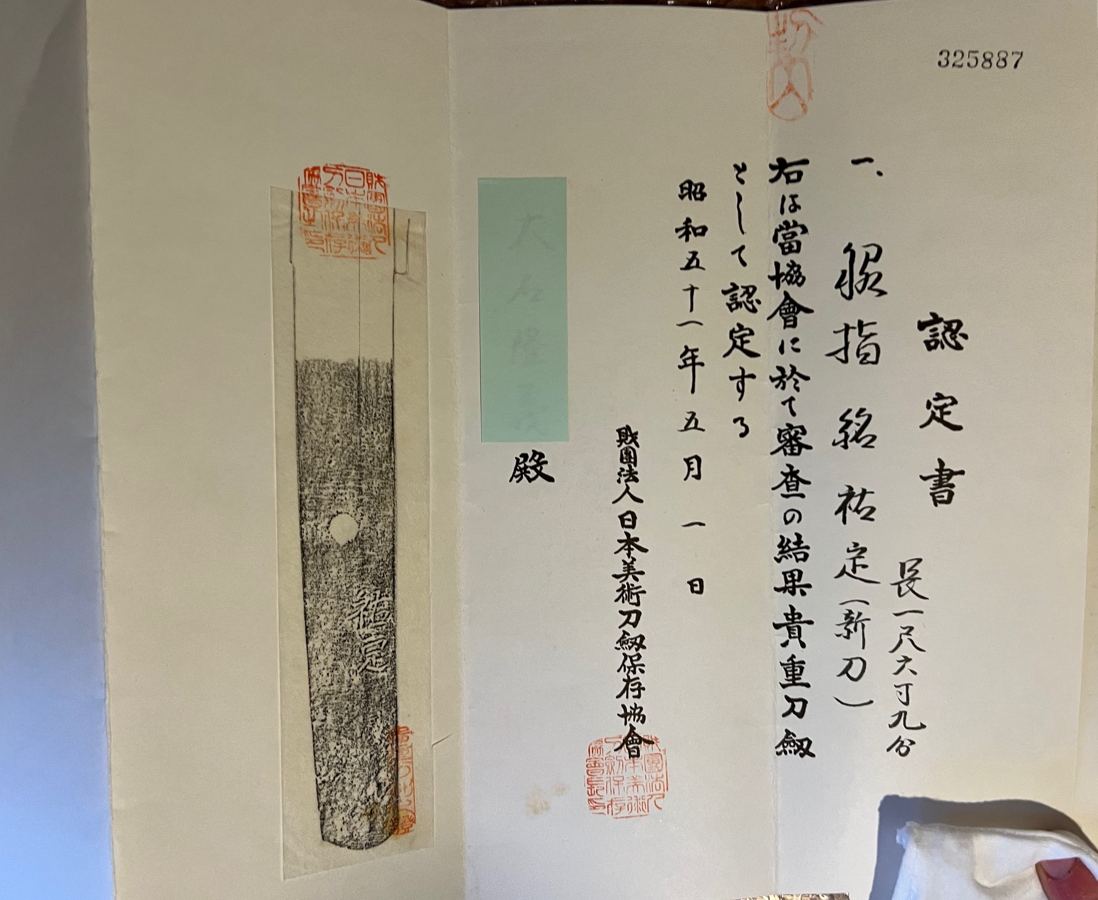 325887
認定書
長一尺六寸九分
一、脇指 銘 祐定(新刀)
右は當協會に於て審査の結果貴重刀劔
として認定する
昭和五十一年五月一日
財團法人日本美術刀劔保存協會
殿
祐定